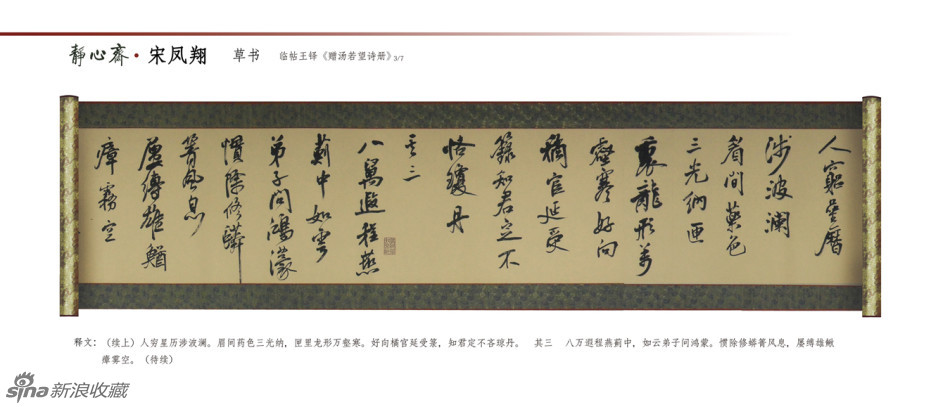 静心斋·宋凤翔 草书 临帖王铎《赠汤若望诗册》3/7
人窮星曆
涉波澜
眉间藥色
三光納匣
裏龍形萬
壑寒好向
橘官延受
籙知君定不
悋瓊丹
其三
八萬遐程燕
蓟中如雲
弟子问鴻濛
慣除修蟒
箐風息
屢縛雄鰌
瘴霧空
释文：（续上）人穷星历涉波澜。眉间药色三光纳，匣里龙形万壑寒。好向橘官延受箓，知君定不吝琼丹。 其三 八万遐程燕蓟中，如云弟子问鸿蒙。惯除修蟒箐风息，屡缚雄鳅
瘴雾空。（待续）
sina新浪收藏